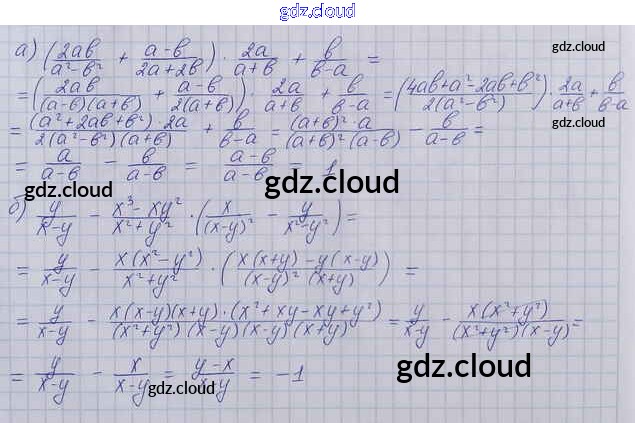 gdz.cloud
gdz.cloud
а) (2ab/(a²-b²) + (a-b)/(2a+2b)) · 2a/(a+b) + b/(b-a) =
= (2ab/((a-b)(a+b)) + (a-b)/(2(a+b))) · 2a/(a+b) + b/(b-a) = (4ab+a²-2ab+b²)/(2(a²-b²)) · 2a/(a+b) + b/(b-a)
gdz.cloud
gdz.cloud
= (a²+2ab+b²)·2a/(2(a²-b²)(a+b)) + b/(b-a) = (a+b)²·a/((a+b)²(a-b)) - b/(a-b) =
gdz.cloud
= a/(a-b) - b/(a-b) = (a-b)/(a-b) = 1
gdz.cloud
gdz.cloud
б) y/(x-y) - (x³-xy²)/(x²+y²) · (x/(x-y)² - y/(x²-y²)) =
= y/(x-y) - x(x²-y²)/(x²+y²) · (x(x+y)-y(x-y))/((x-y)²(x+y)) =
= y/(x-y) - x(x-y)(x+y)·(x²+xy-xy+y²)/((x²+y²)(x-y)(x-y)(x+y)) = y/(x-y) - x(x²+y²)/((x²+y²)(x-y)) =
= y/(x-y) - x/(x-y) = (y-x)/(x-y) = -1
gdz.cloud
gdz.cloud